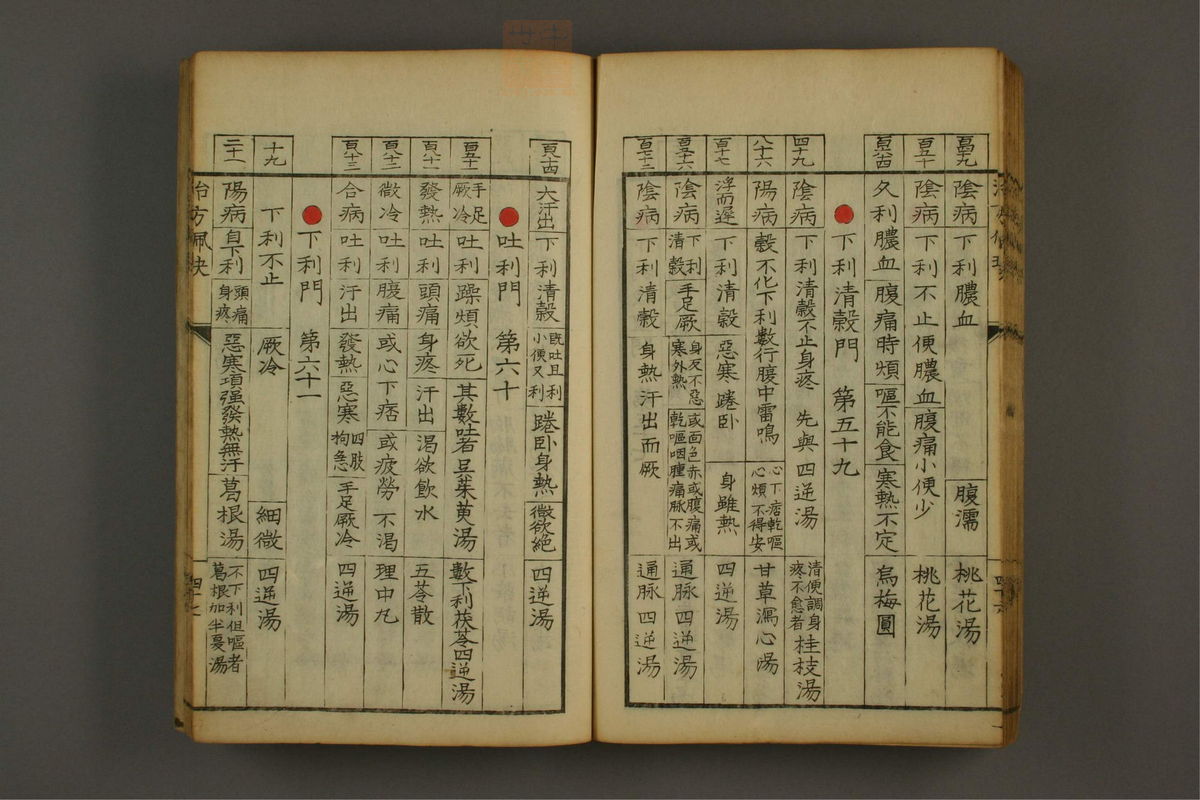 陰病 下利膿血 腹濡 桃花湯
百五十 陰病 下利不止便膿血 腹痛小便少 桃花湯
久利膿血 腹痛時煩 嘔不能食 寒熱不定 烏梅圓
下利清穀門 第五十九
四十九 陰病 下利清穀不止身疼 先與四逆湯 清便調身疼不愈者桂枝湯
八十六 陽病 穀不化下利數行腹中雷鳴 心下痞乾嘔心煩不得安 甘草瀉心湯
百十七 浮而遲 下利清穀 惡寒踡卧 身雖熱 四逆湯
陰病 下利清穀 手足厥 身反不惡寒外熱 或面色赤或腹痛或乾嘔咽腫痛脉不出 通脉四逆湯
陰病 下利清穀 身熱汗出而厥 通脉四逆湯
大汗出 下利清穀 既吐且利小便又利 踡卧身熱 微欲絶 四逆湯
吐利門 第六十
手足厥冷 吐利躁煩欲死 其數吐者呈茱萸湯 數下利茯苓四逆湯
發熱 吐利頭痛 身疼 汗出 渴欲飲水 五苓散
微冷 吐利腹痛 或心下痞 或疲勞 不渴 理中丸
合病 吐利汗出 發熱 惡寒 四肢拘急 手足厥冷 四逆湯
下利門 第六十一
十九 下利不止 厥冷 細微 四逆湯
二十一 陽病 自下利 頭痛身疼 惡寒項强發熱無汗 葛根湯 不下利但嘔者葛根加半夏湯
治方佩決